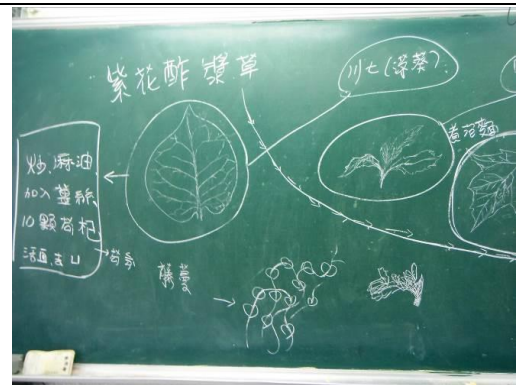 紫花酢漿草
川七(落葵)
煮泡麵
炒麻油
加入薑絲
10顆枸杞
活血去
藤蔓